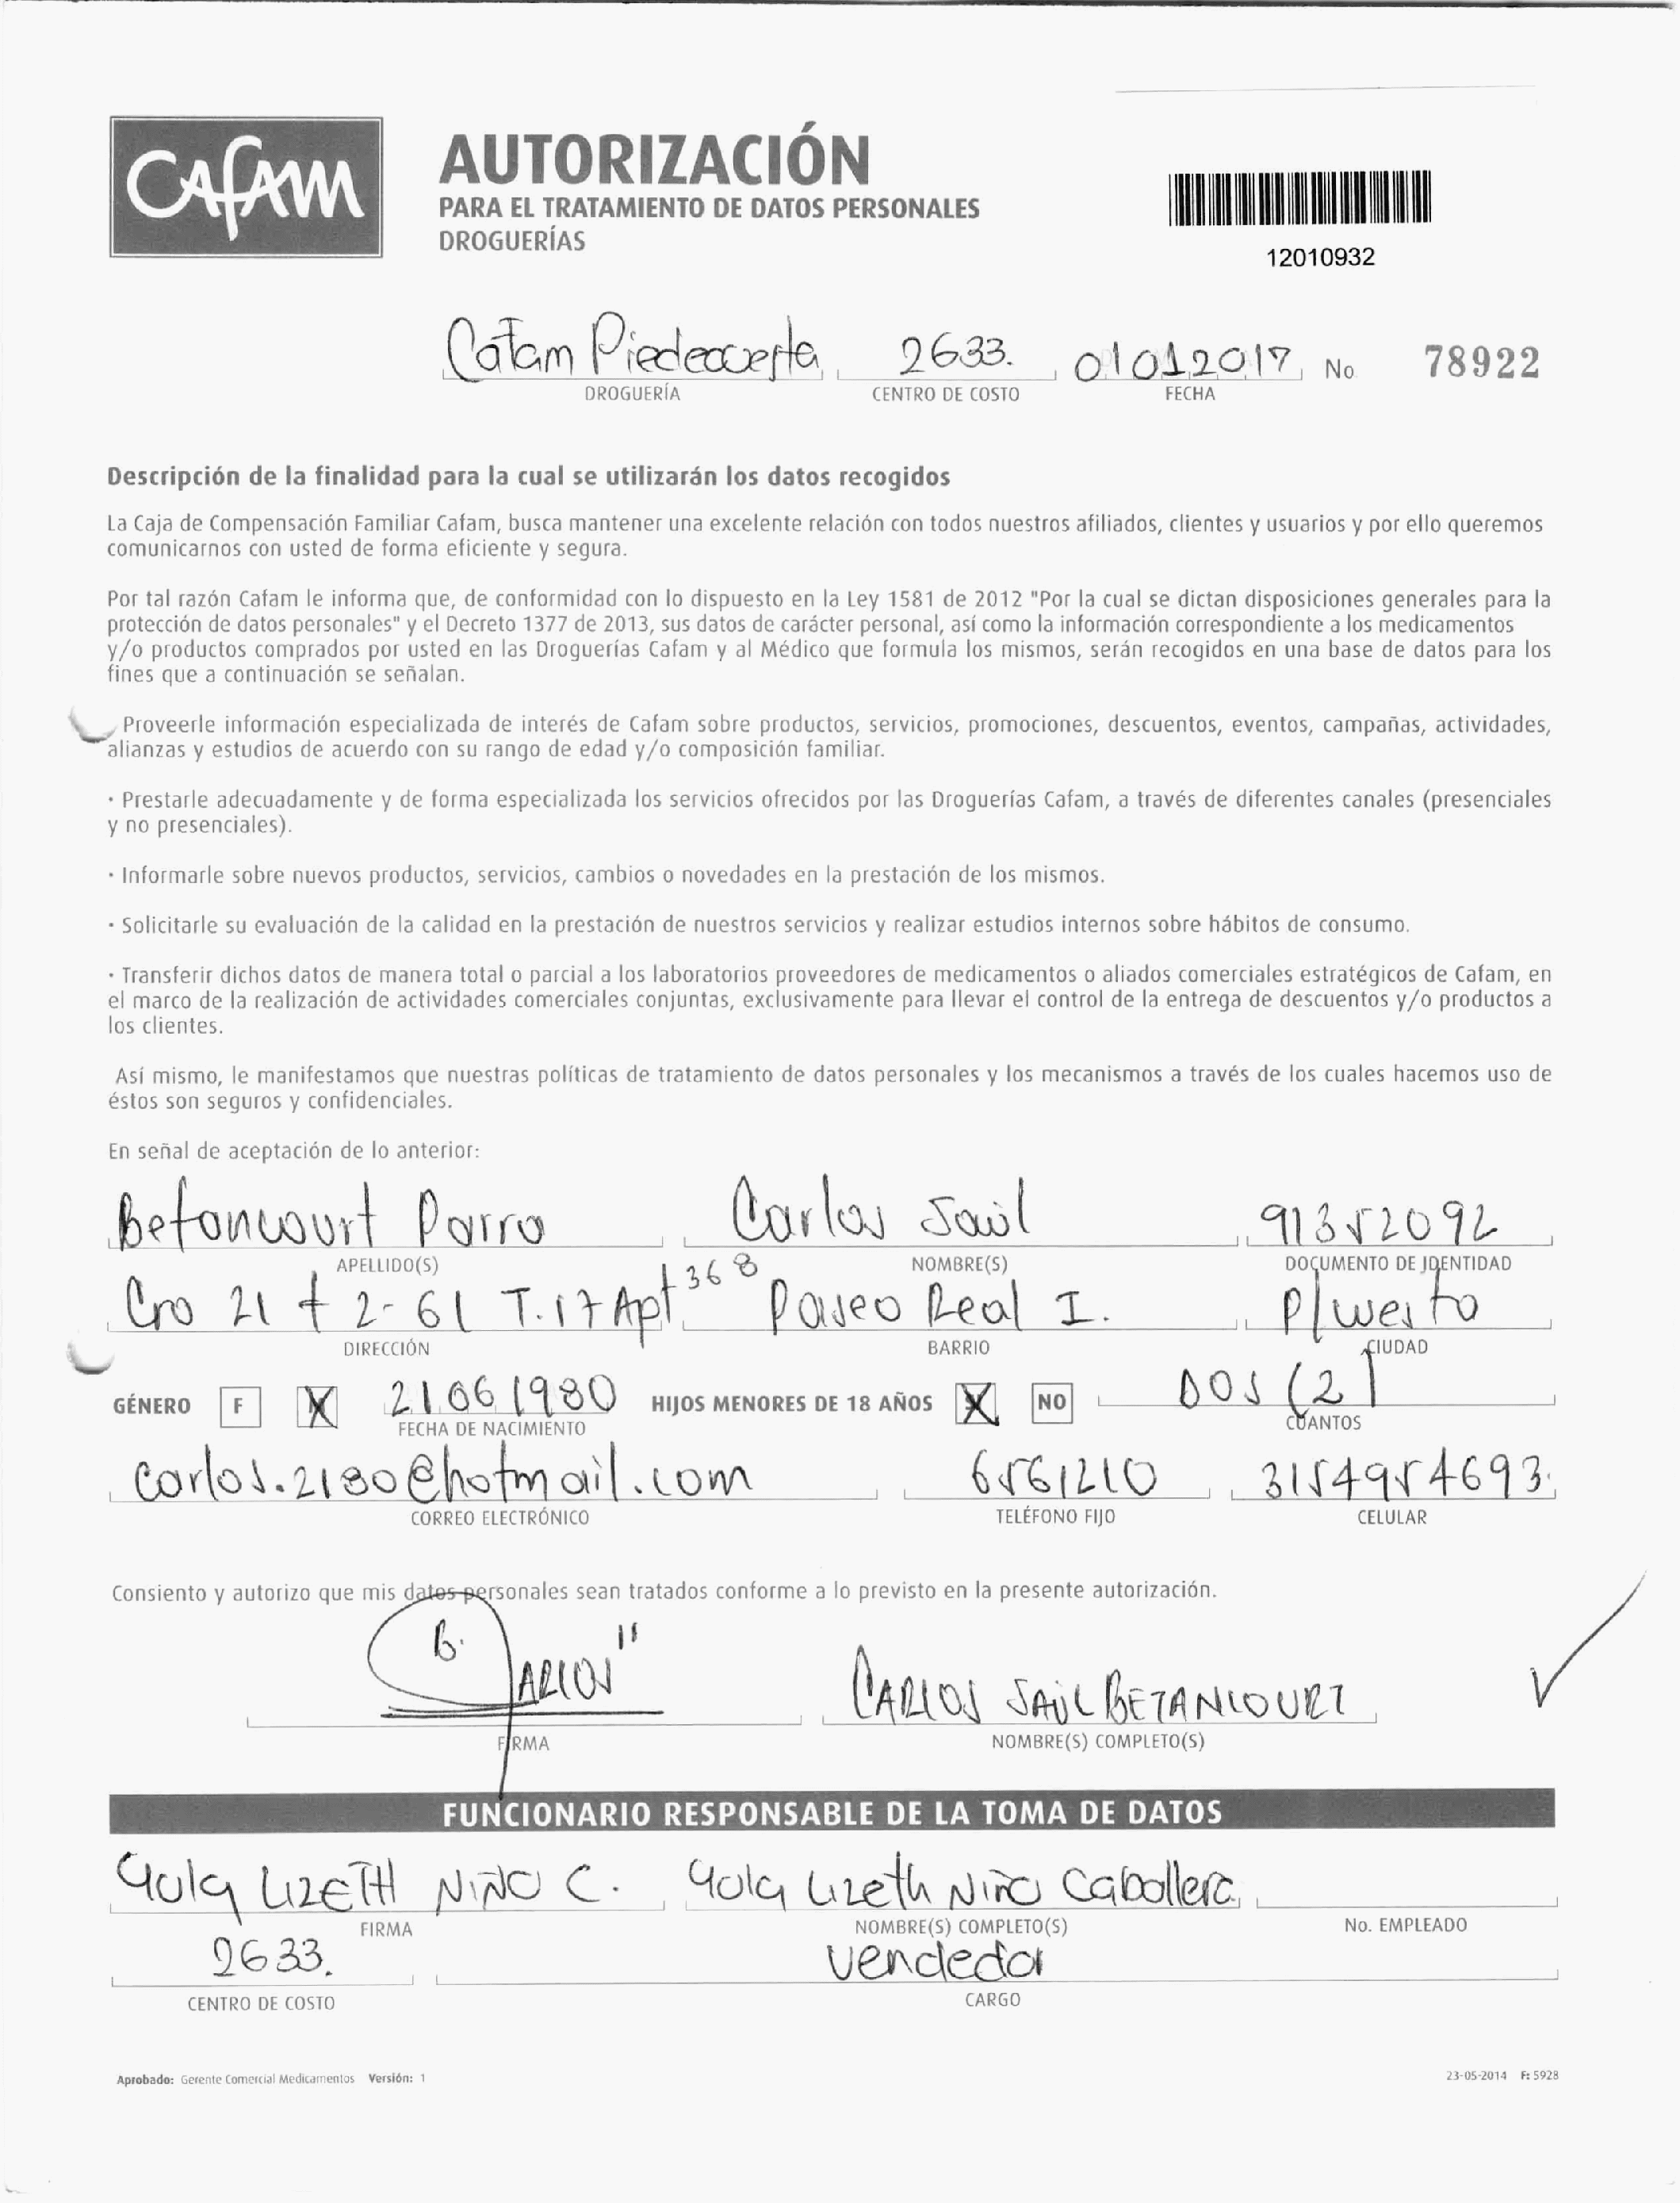 CAFAM
AUTORIZACIÓN
PARA EL TRATAMIENTO DE DATOS PERSONALES
DROGUERÍAS
12010932
Cafam Piedecuesta 2633. 01012017 No 78922
DROGUERÍA CENTRO DE COSTO FECHA
Descripción de la finalidad para la cual se utilizarán los datos recogidos
La Caja de Compensación Familiar Cafam, busca mantener una excelente relación con todos nuestros afiliados, clientes y usuarios y por ello queremos
comunicarnos con usted de forma eficiente y segura.
Por tal razón Cafam le informa que, de conformidad con lo dispuesto en la Ley 1581 de 2012 "Por la cual se dictan disposiciones generales para la
protección de datos personales" y el Decreto 1377 de 2013, sus datos de carácter personal, así como la información correspondiente a los medicamentos
y/o productos comprados por usted en las Droguerías Cafam y al Médico que formula los mismos, serán recogidos en una base de datos para los
fines que a continuación se señalan.
Proveerle información especializada de interés de Cafam sobre productos, servicios, promociones, descuentos, eventos, campañas, actividades,
alianzas y estudios de acuerdo con su rango de edad y/o composición familiar.
· Prestarle adecuadamente y de forma especializada los servicios ofrecidos por las Droguerías Cafam, a través de diferentes canales (presenciales
y no presenciales).
· Informarle sobre nuevos productos, servicios, cambios o novedades en la prestación de los mismos.
· Solicitarle su evaluación de la calidad en la prestación de nuestros servicios y realizar estudios internos sobre hábitos de consumo.
· Transferir dichos datos de manera total o parcial a los laboratorios proveedores de medicamentos o aliados comerciales estratégicos de Cafam, en
el marco de la realización de actividades comerciales conjuntas, exclusivamente para llevar el control de la entrega de descuentos y/o productos a
los clientes.
Así mismo, le manifestamos que nuestras políticas de tratamiento de datos personales y los mecanismos a través de los cuales hacemos uso de
éstos son seguros y confidenciales.
En señal de aceptación de lo anterior:
Betancourt Parra Carlos Saúl 91352092
APELLIDO(S) NOMBRE(S) DOCUMENTO DE IDENTIDAD
Cra 21 # 2-61 T.17 Apt 368 Paseo Real I. P/uesta
DIRECCIÓN BARRIO CIUDAD
GÉNERO F X 21 06 1980 HIJOS MENORES DE 18 AÑOS X NO DOS (2)
FECHA DE NACIMIENTO CUANTOS
carlos.2180@hotmail.com 6561210 3154954693
CORREO ELECTRÓNICO TELÉFONO FIJO CELULAR
Consiento y autorizo que mis datos personales sean tratados conforme a lo previsto en la presente autorización.
B. CARLOS" CARLOS SAÚL BETANCOURT
FIRMA NOMBRE(S) COMPLETO(S)
FUNCIONARIO RESPONSABLE DE LA TOMA DE DATOS
Yula LIZETH NIÑO C. Yula Lizeth Niño Caballero
FIRMA NOMBRE(S) COMPLETO(S) No. EMPLEADO
2633. vendedor
CENTRO DE COSTO CARGO
Aprobado: Gerente Comercial Medicamentos Versión: 1 23-05-2014 F: 5928